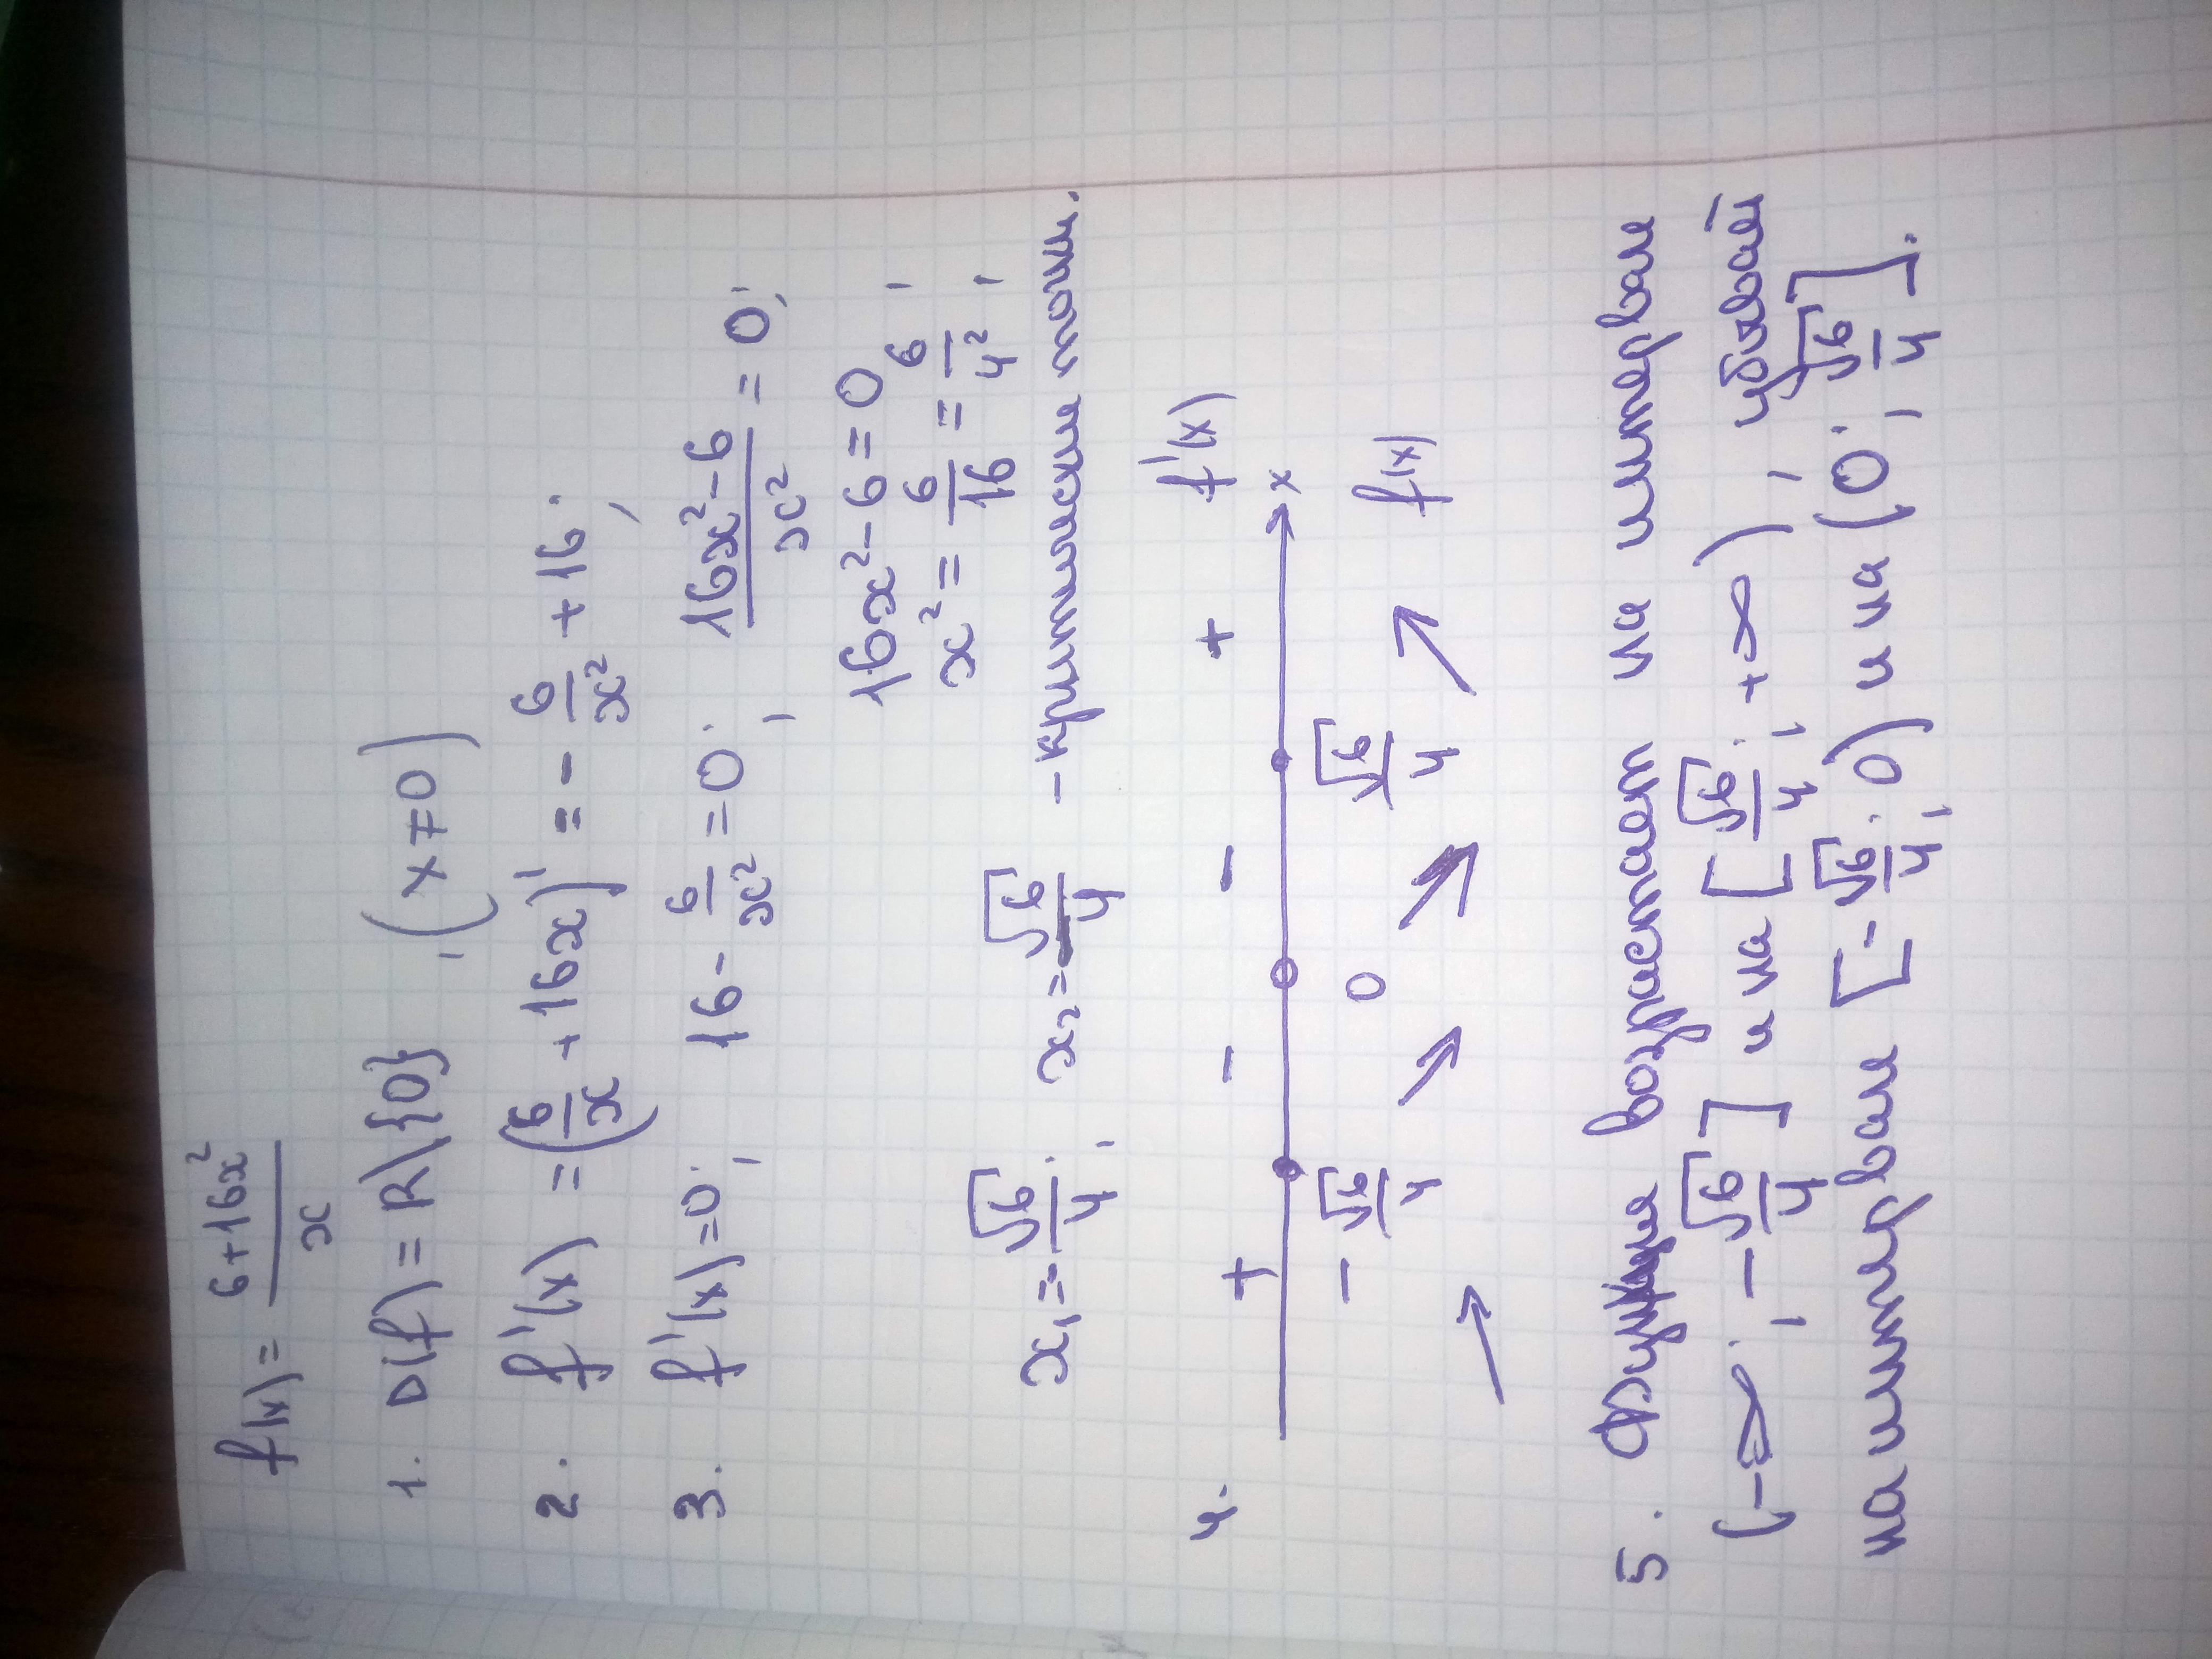 f(x) = (6+16x²)/x
1. D(f) = R\{0} , (x≠0)
2. f'(x) = (6/x + 16x)' = - 6/x² + 16 ;
3. f'(x)=0 ; 16 - 6/x² = 0 ; (16x²-6)/x² = 0 ;
16x²-6=0 ;
x² = 6/16 = 6/4² ;
x₁ = -√6/4 ; x₂ = √6/4 - критические точки.
4. + - - + f'(x)
x
-√6/4 0 √6/4 f(x)
↗ ↘ ↘ ↗
5. Функция возрастает на интервале
(-∞ ; -√6/4] и на [√6/4 ; +∞) , убывает
на интервале [-√6/4 ; 0) и на (0 ; √6/4].